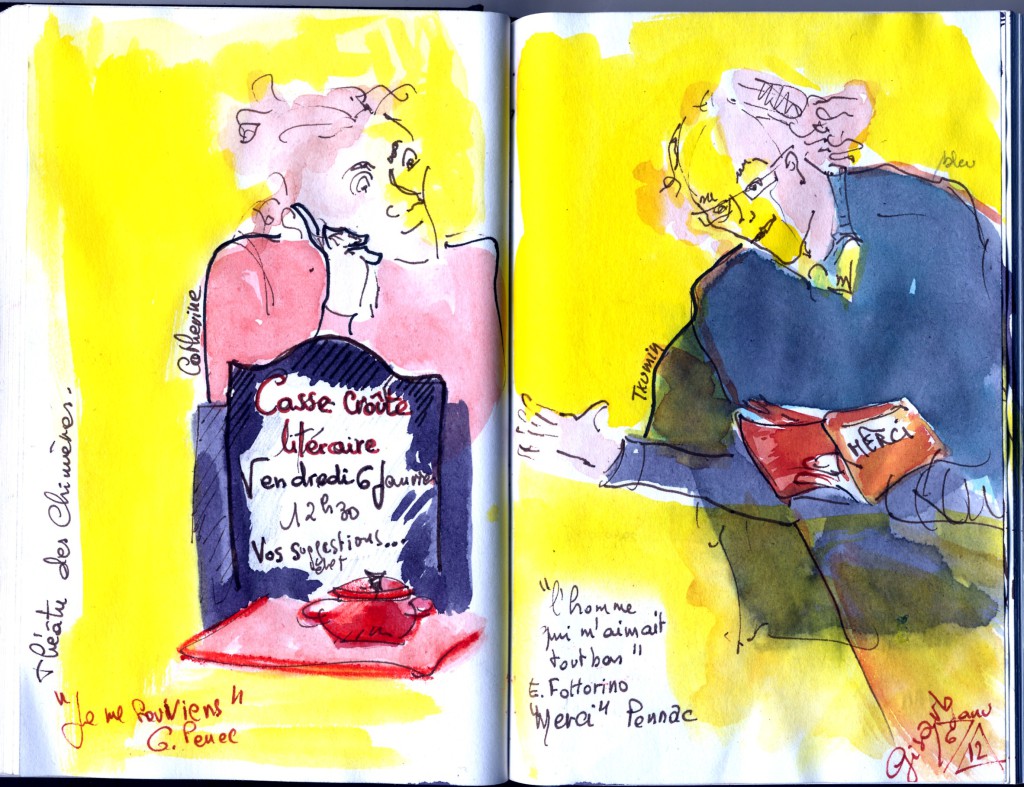 Théâtre des Chimères..
Catherine
Casse Croûte
litéraire
Vendredi 6 Janvier
12h30
Vos suggestions...
"Je me souviens"
G. Perec
bleu
Txomin
MERCI
"l'homme
qui m'aimait
tout bas"
E. Fottorino
"Merci" Pennac
6 Janv
12